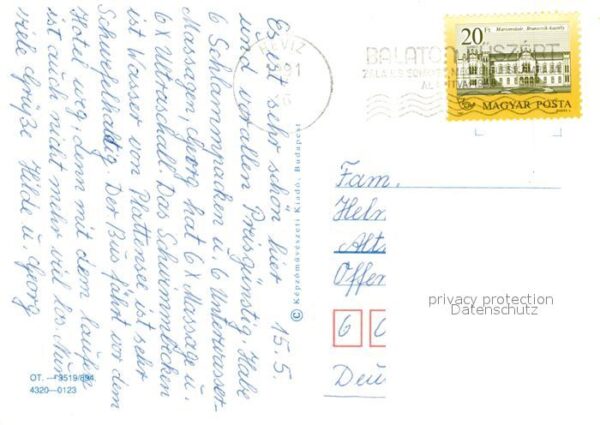 15.5.
Es ist sehr schön hier
und vor allen Preisgünstig. Habe
6 Schlammpacken u. 6 Unterwasser-
Massagen, Georg hat 6 x Massage u.
6 x Ultraschall. Das Schwimmbecken
ist Wasser von Plattensee ist sehr
Schwefelhaltig. Der Bus fährt vor dem
Hotel weg, denn mit dem laufen
ist auch nicht mehr viel los. Nun
viele Grüße Hilde u. Georg
OT. — 3519/894
4320—0123
© Képzőművészeti Kiadó, Budapest
HÉVIZ
91
BALATON
20 Ft
MAGYAR POSTA
Fam.
Helm
Alts
Offen
6
Deu
privacy protection
Datenschutz